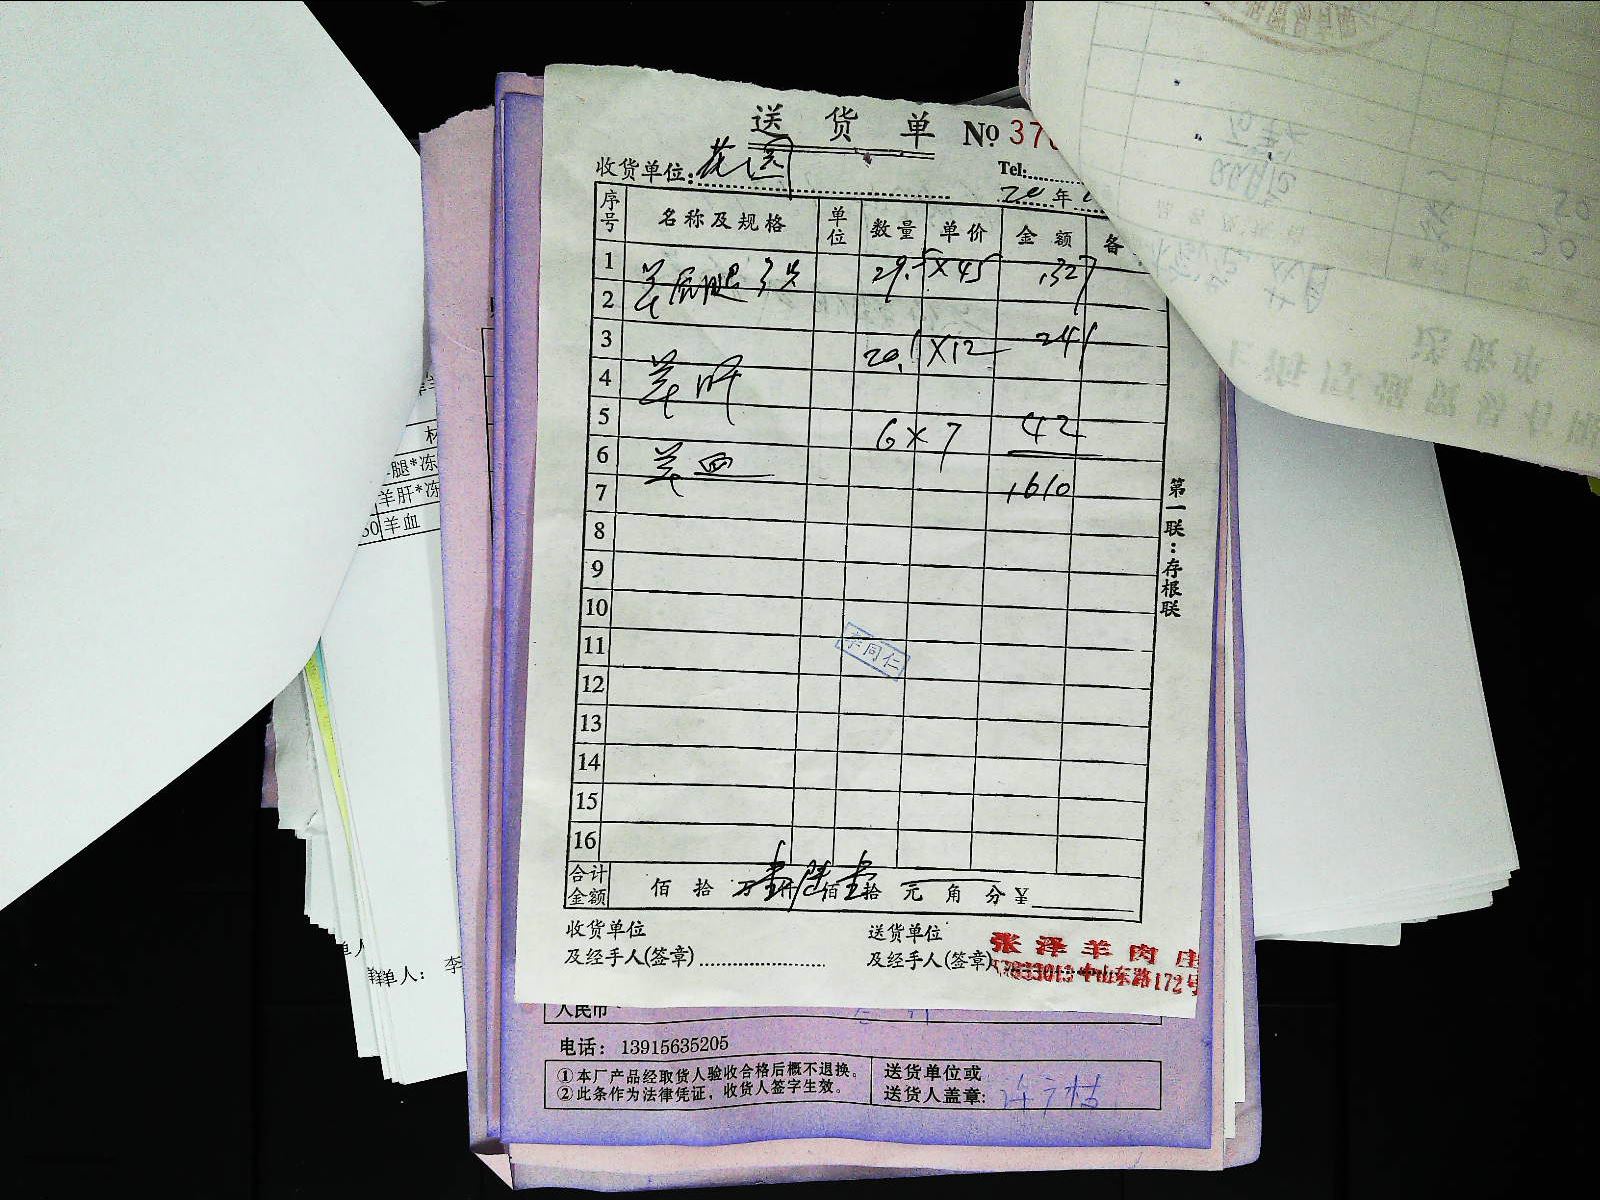 送货单 № 37
收货单位: 花园
Tel:
20 年
序号 名称及规格 单位 数量 单价 金额 备
1 羊后腿3只 29.5 × 45 1327
2
3 20.1 × 12 241
4 羊肝
5 6 × 7 42
6 羊血
7 1610
8
9
10
11
李同仁
12
13
14
15
16
合计金额 佰 拾 万 壹仟 陆佰 壹拾 元 角 分 ¥
收货单位 送货单位
及经手人(签章) 及经手人(签章)
张泽羊肉庄
57833013 中山东路172号
第一联:存根联
腿*冻
羊肝*冻
羊血
单人: 李
人民币
电话: 13915635205
①本厂产品经取货人验收合格后概不退换。
②此条作为法律凭证，收货人签字生效。
送货单位或
送货人盖章: